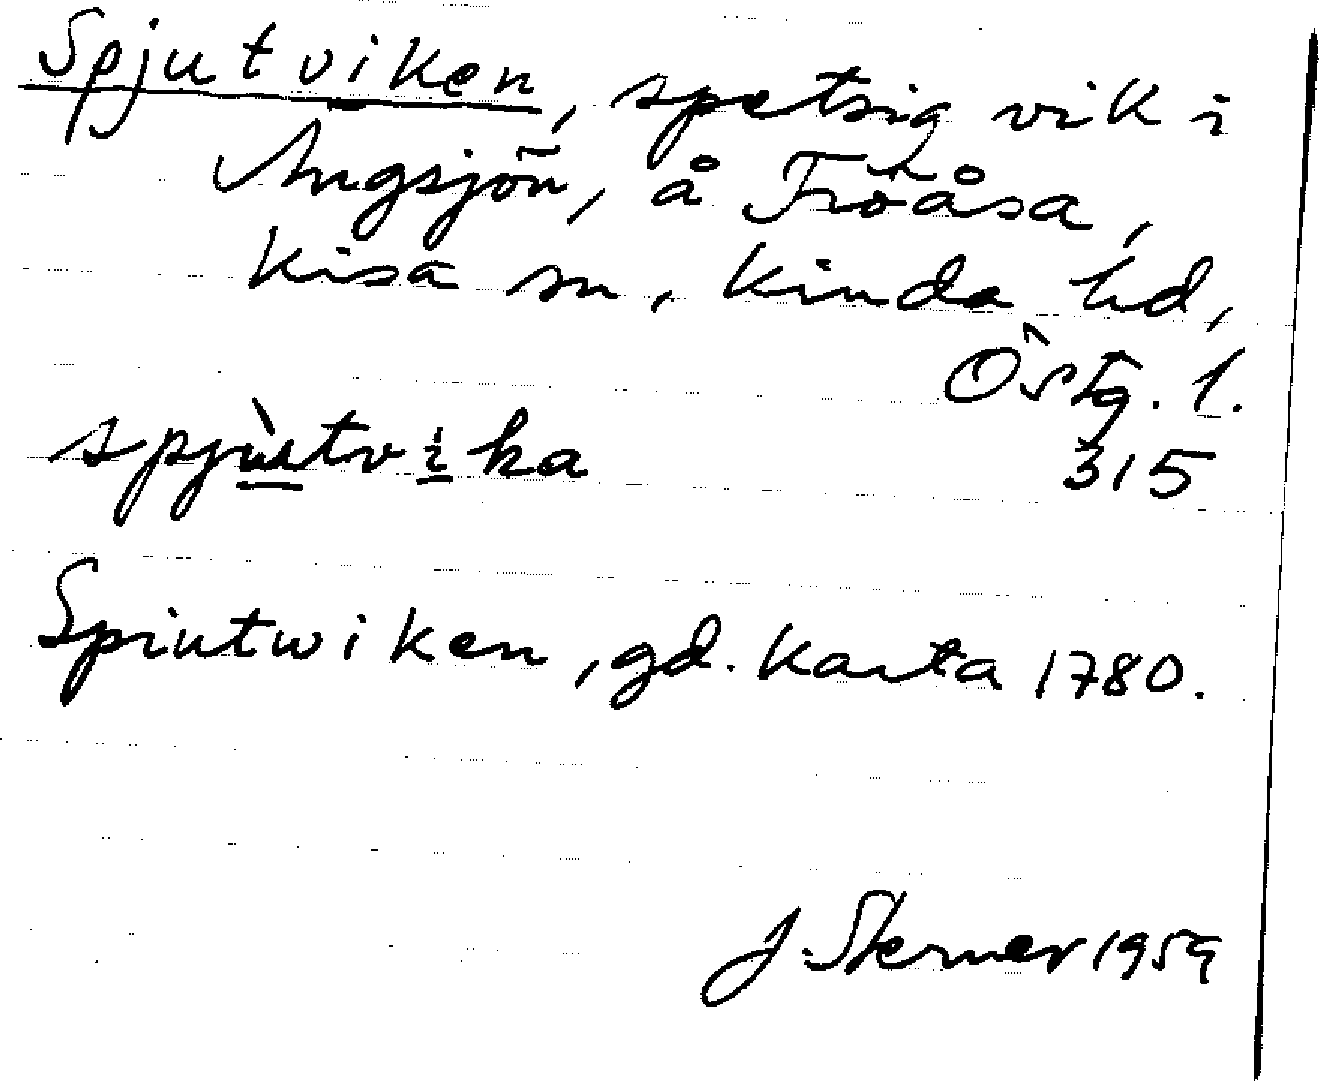 Spjutviken, spetsig vik i
Ångsjön, å Fröåsa,
Kisa sn, Kinda hd,
Östg. l.
spju̱tvi̱ka 315
Spiutwiken, gd. Karta 1780.
J. Sterner 1959